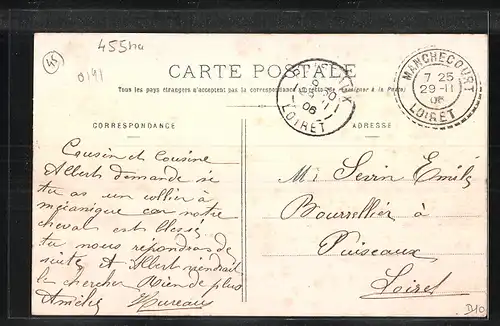 45
455na
0141
CARTE POSTALE
Tous les pays étrangers n'acceptent pas la correspondance au recto (se renseigner à la Poste)
PUISEAUX
LOIRET
06
MANCHECOURT
7 25
29 - 11
06
LOIRET
CORRESPONDANCE
ADRESSE
Cousin et Cousine
Albert demande si
tu as un collier à
mécanique car notre
cheval est blessé
tu nous repondras de
suite et Albert viendrait
le chercher Rien de plus
Amélie Hureau
Mr Sevin Emile
Bourrellier à
Puiseaux
Loiret
D10